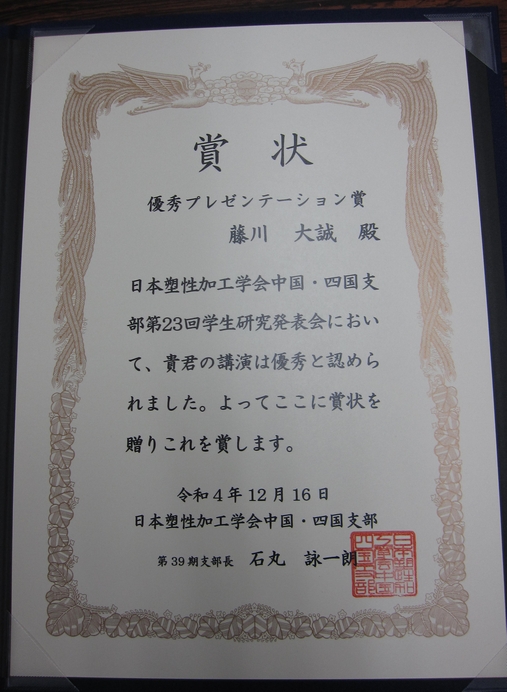 賞 状
優秀プレゼンテーション賞
藤川 大誠 殿
日本塑性加工学会中国・四国支
部第23回学生研究発表会におい
て、貴君の講演は優秀と認めら
れました。よってここに賞状を
贈りこれを賞します。
令和4年12月16日
日本塑性加工学会中国・四国支部
第39期支部長 石丸 詠一朗